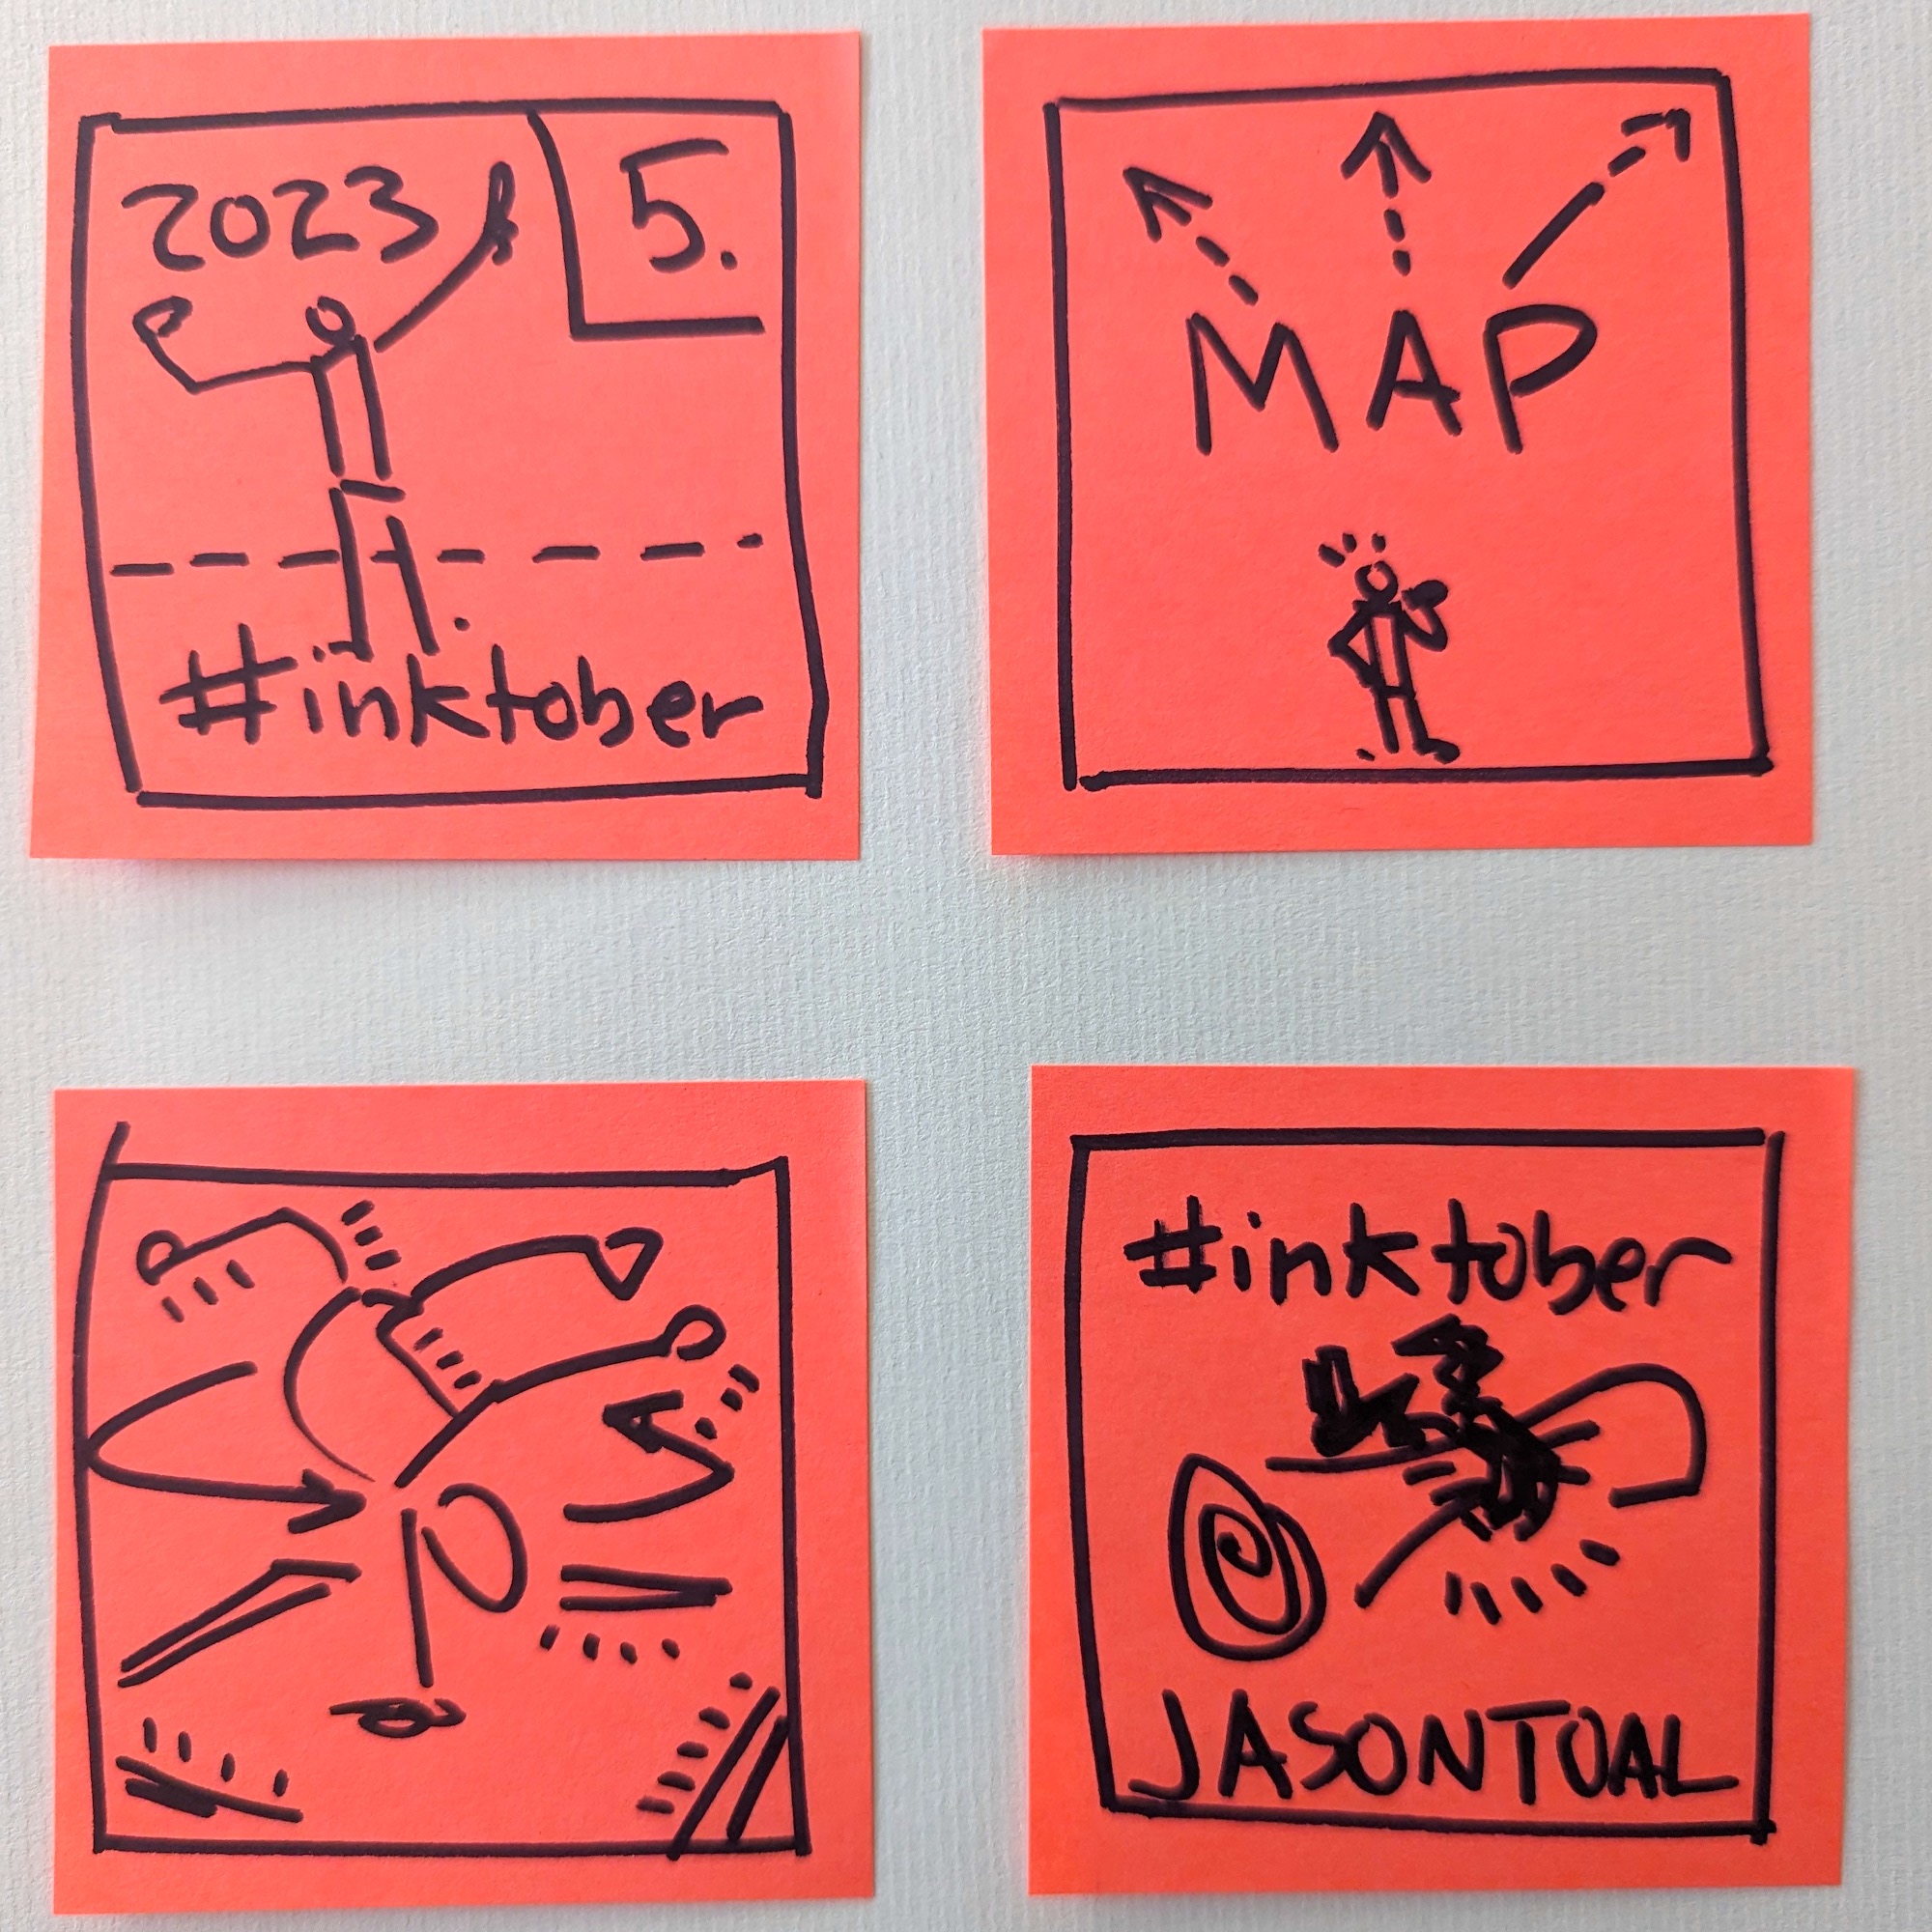 2023
5.
#inktober
MAP
#inktober
JASONTOAL